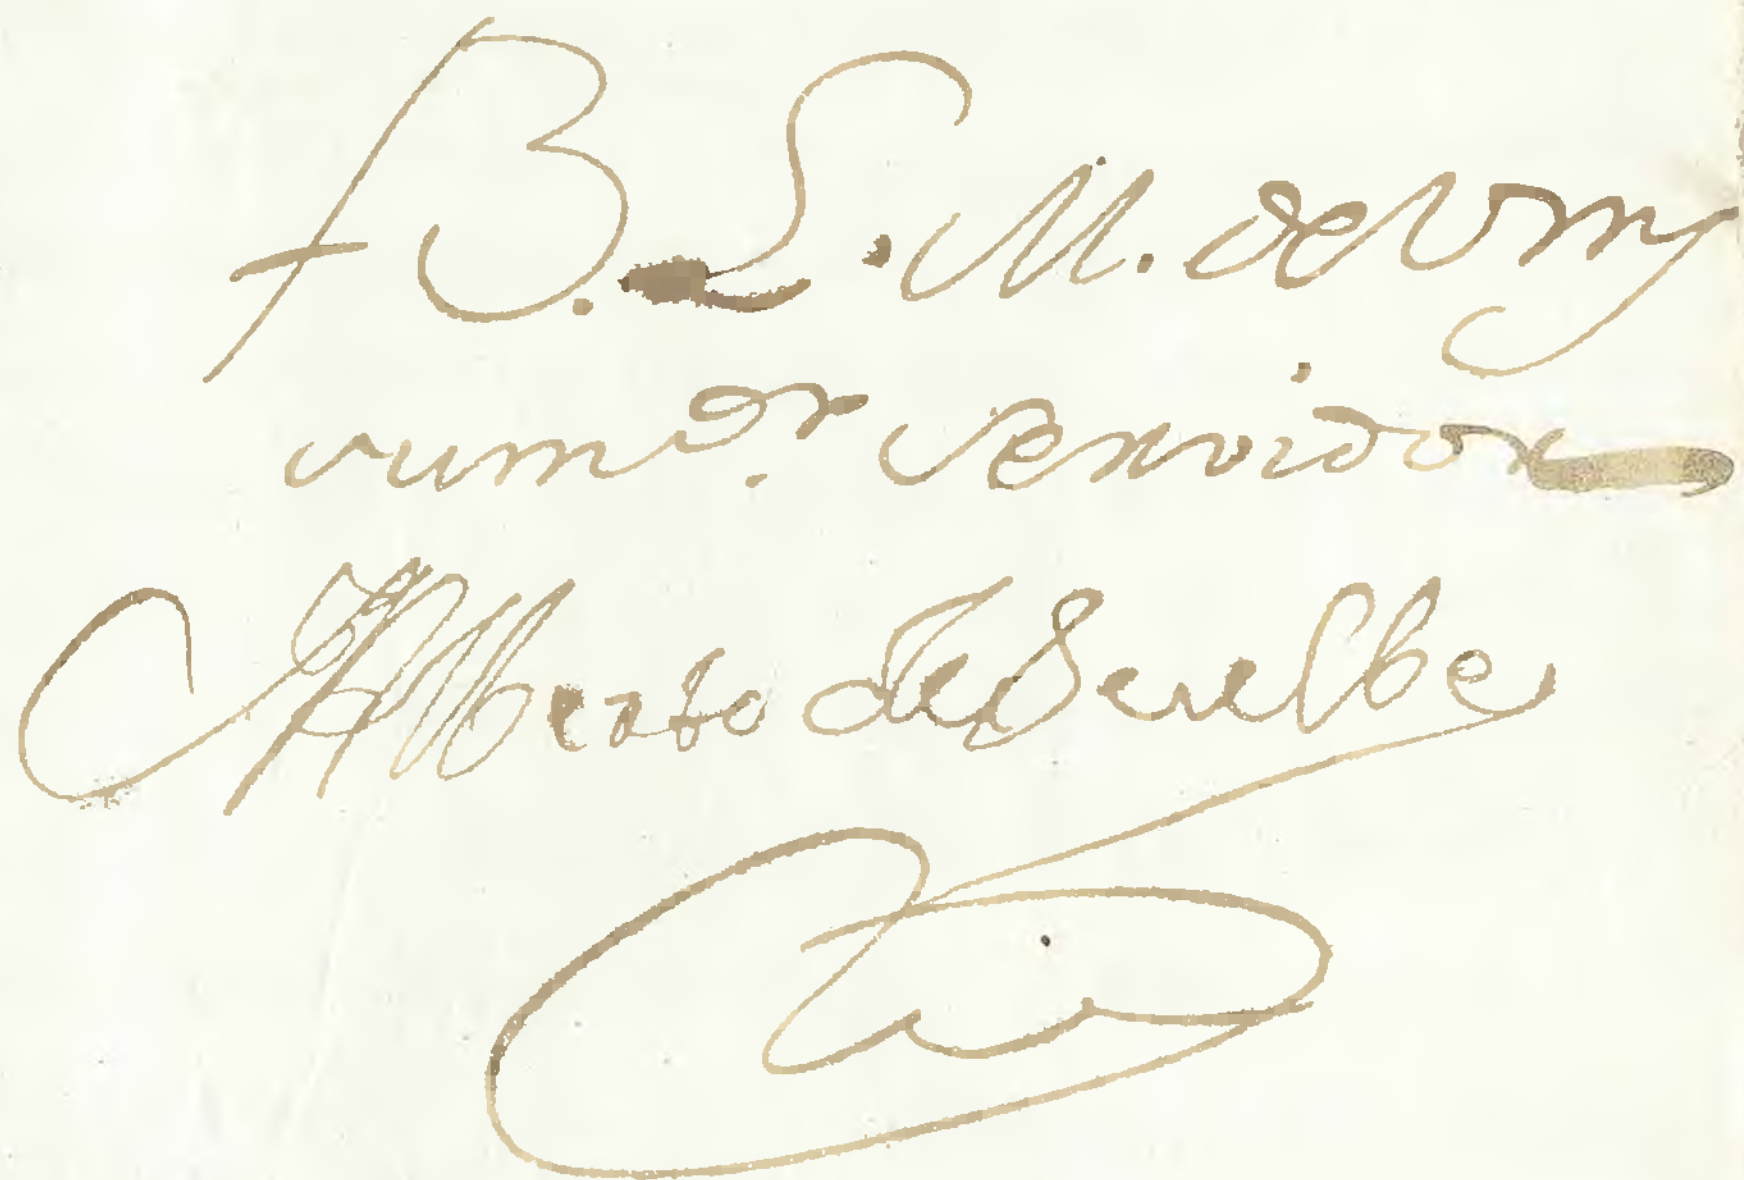 B. L. M. de Vm
sum^or. servidor
Alberto de Suelbe